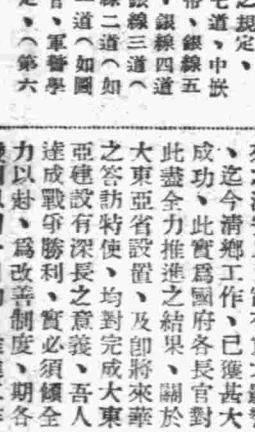 之規定、
七道、中嵌
帶、銀線五
、銀線四道
銀線三道（
線二道（如
一道（如圖
、軍警學
定、（第六
、迄今清鄉工作、已獲甚大
成功、此實爲國府各長官對
此盡全力推進之結果、關於
大東亞省設置、及卽將來華
之答訪特使、均對完成大東
亞建設有深長之意義、吾人
達成戰爭勝利、實必須傾全
力以赴、爲改善制度、期各